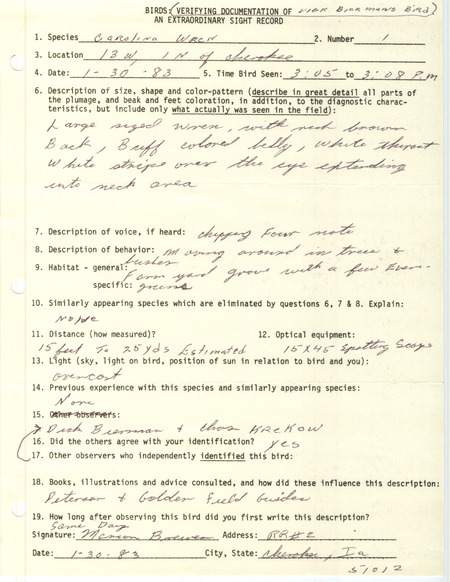 BIRDS: (VERIFYING DOCUMENTATION OF DICK BIERMANS BIRD)
AN EXTRAORDINARY SIGHT RECORD
1. Species Carolina Wren 2. Number 1
3. Location 13 W, 1 N of Cherokee
4. Date: 1-30-83 5. Time Bird Seen: 3:05 to 3:08 P.M
6. Description of size, shape and color-pattern (describe in great detail all parts of
the plumage, and beak and feet coloration, in addition, to the diagnostic charac-
teristics, but include only what actually was seen in the field):
Large sized wren, with red brown
Back, Buff colored belly, White throat
White stripe over the eye extending
into neck area
7. Description of voice, if heard: chipping Four note
8. Description of behavior: Moving around in trees &
bushes
9. Habitat - general: Farm yard grove with a few Ever-
specific: greens
10. Similarly appearing species which are eliminated by questions 6, 7 & 8. Explain:
None
11. Distance (how measured)? 12. Optical equipment:
15 feet To 25 yds Estimated 15X45 Spotting Scope
13. Light (sky, light on bird, position of sun in relation to bird and you):
overcast
14. Previous experience with this species and similarly appearing species:
None
15. Other observers:
Dick Bierman & Chas KREKOW
16. Did the others agree with your identification? yes
17. Other observers who independently identified this bird:
18. Books, illustrations and advice consulted, and how did these influence this description:
Peterson & Golden Field Guides
19. How long after observing this bird did you first write this description?
Same Day
Signature: Marion Brewer Address: RR#2
Date: 1-30-83 City, State: Cherokee, Ia
51012